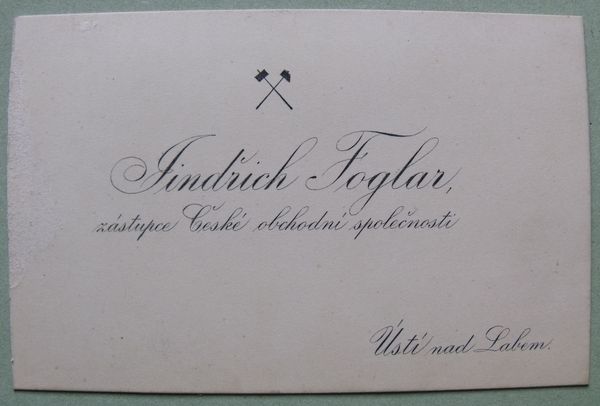 Jindřich Foglar,
zástupce České obchodní společnosti
Ústí nad Labem.